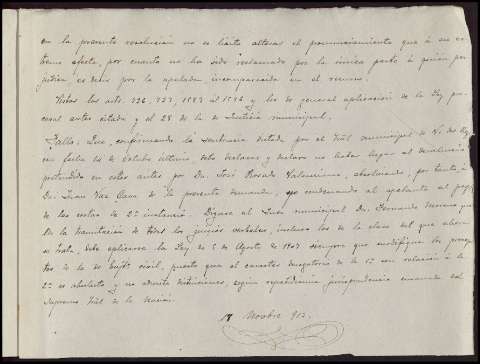 en la presente resolución no es lícito alterar el pronunciamiento que á ese ex-
tremo afecta, por cuanto no ha sido reclamado por la única parte á quien per-
judica, es decir por la apelada, incomparecida en el recurso.
Vistos los arts. 736, 737, 1583 al 1586 y los de general aplicación de la Ley pro-
cesal antes citada y el 28 de la de Justicia municipal,
Fallo: Que, confirmando la sentencia dictada por el Tbal municipal de
en fecha 16 de Octubre último, debo declarar y declaro no haber lugar al
pretendido en estos autos por Dn. José Rosado Valenciana, absolviendo, por tanto, á
Dn. Juan Vaz Cano de la presente demanda, y condenando al apelante al pago
de las costas de 2ª instancia. Dígase al Juez municipal Dn. Fernando Moreno que
en la tramitación de todos los juicios verbales, incluso los de la clase del que ahora
se trata, debe aplicarse la Ley de 5 de Agosto de 1907 siempre que modifique los precep-
tos de la de Enjto. civil, puesto que el carácter derogatorio de la 1ª con relación á la
2ª es absoluto y no admite distinciones, según repetidísima jurisprudencia emanada del
Supremo Tbal de la Nación.
Novbre 912.